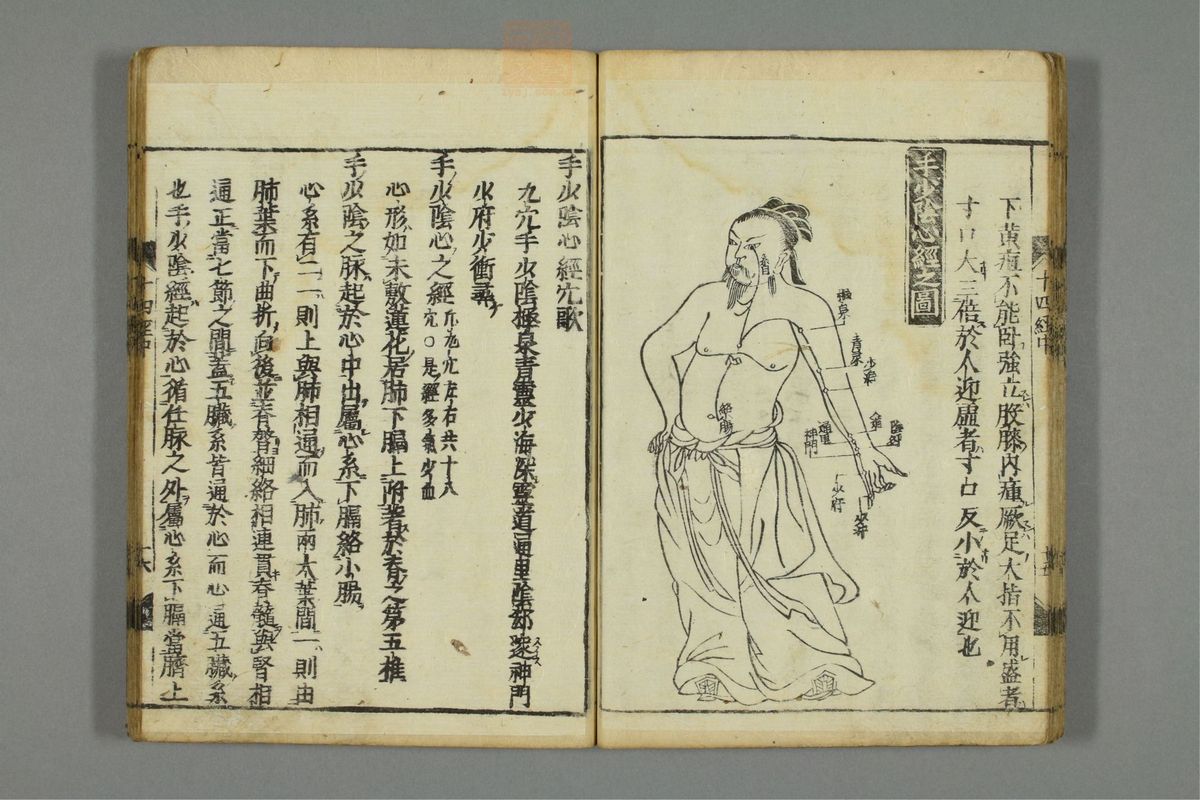 下黄疸不能卧強立股膝内痛厥足大指不用盛者
寸口大三倍於人迎虚者寸口反小於人迎也
手少陰心經之圖
極泉
青灵
少海
灵道
通里
神門
陰郄
少府
少衝
十四經中
手少陰心經穴歌
九穴手少陰極泉青靈少海深靈道通里陰郄邃神門
少府少衝尋
手少陰心之經
凡九穴左右共十八
穴○是經多氣少血
心形如未敷蓮花居肺下膈上附著於脊之第五椎
手少陰之脉起於心中出屬心系下膈絡小腸
心系有二一則上與肺相通而入肺兩大葉間一則由
肺葉而下曲折向後並脊膂細絡相連貫脊髓與腎相
通正當七節之間蓋五臟系皆通於心而心通五臟系
也手少陰經起於心循任脉之外屬心系下膈當臍上
十四經中
十六